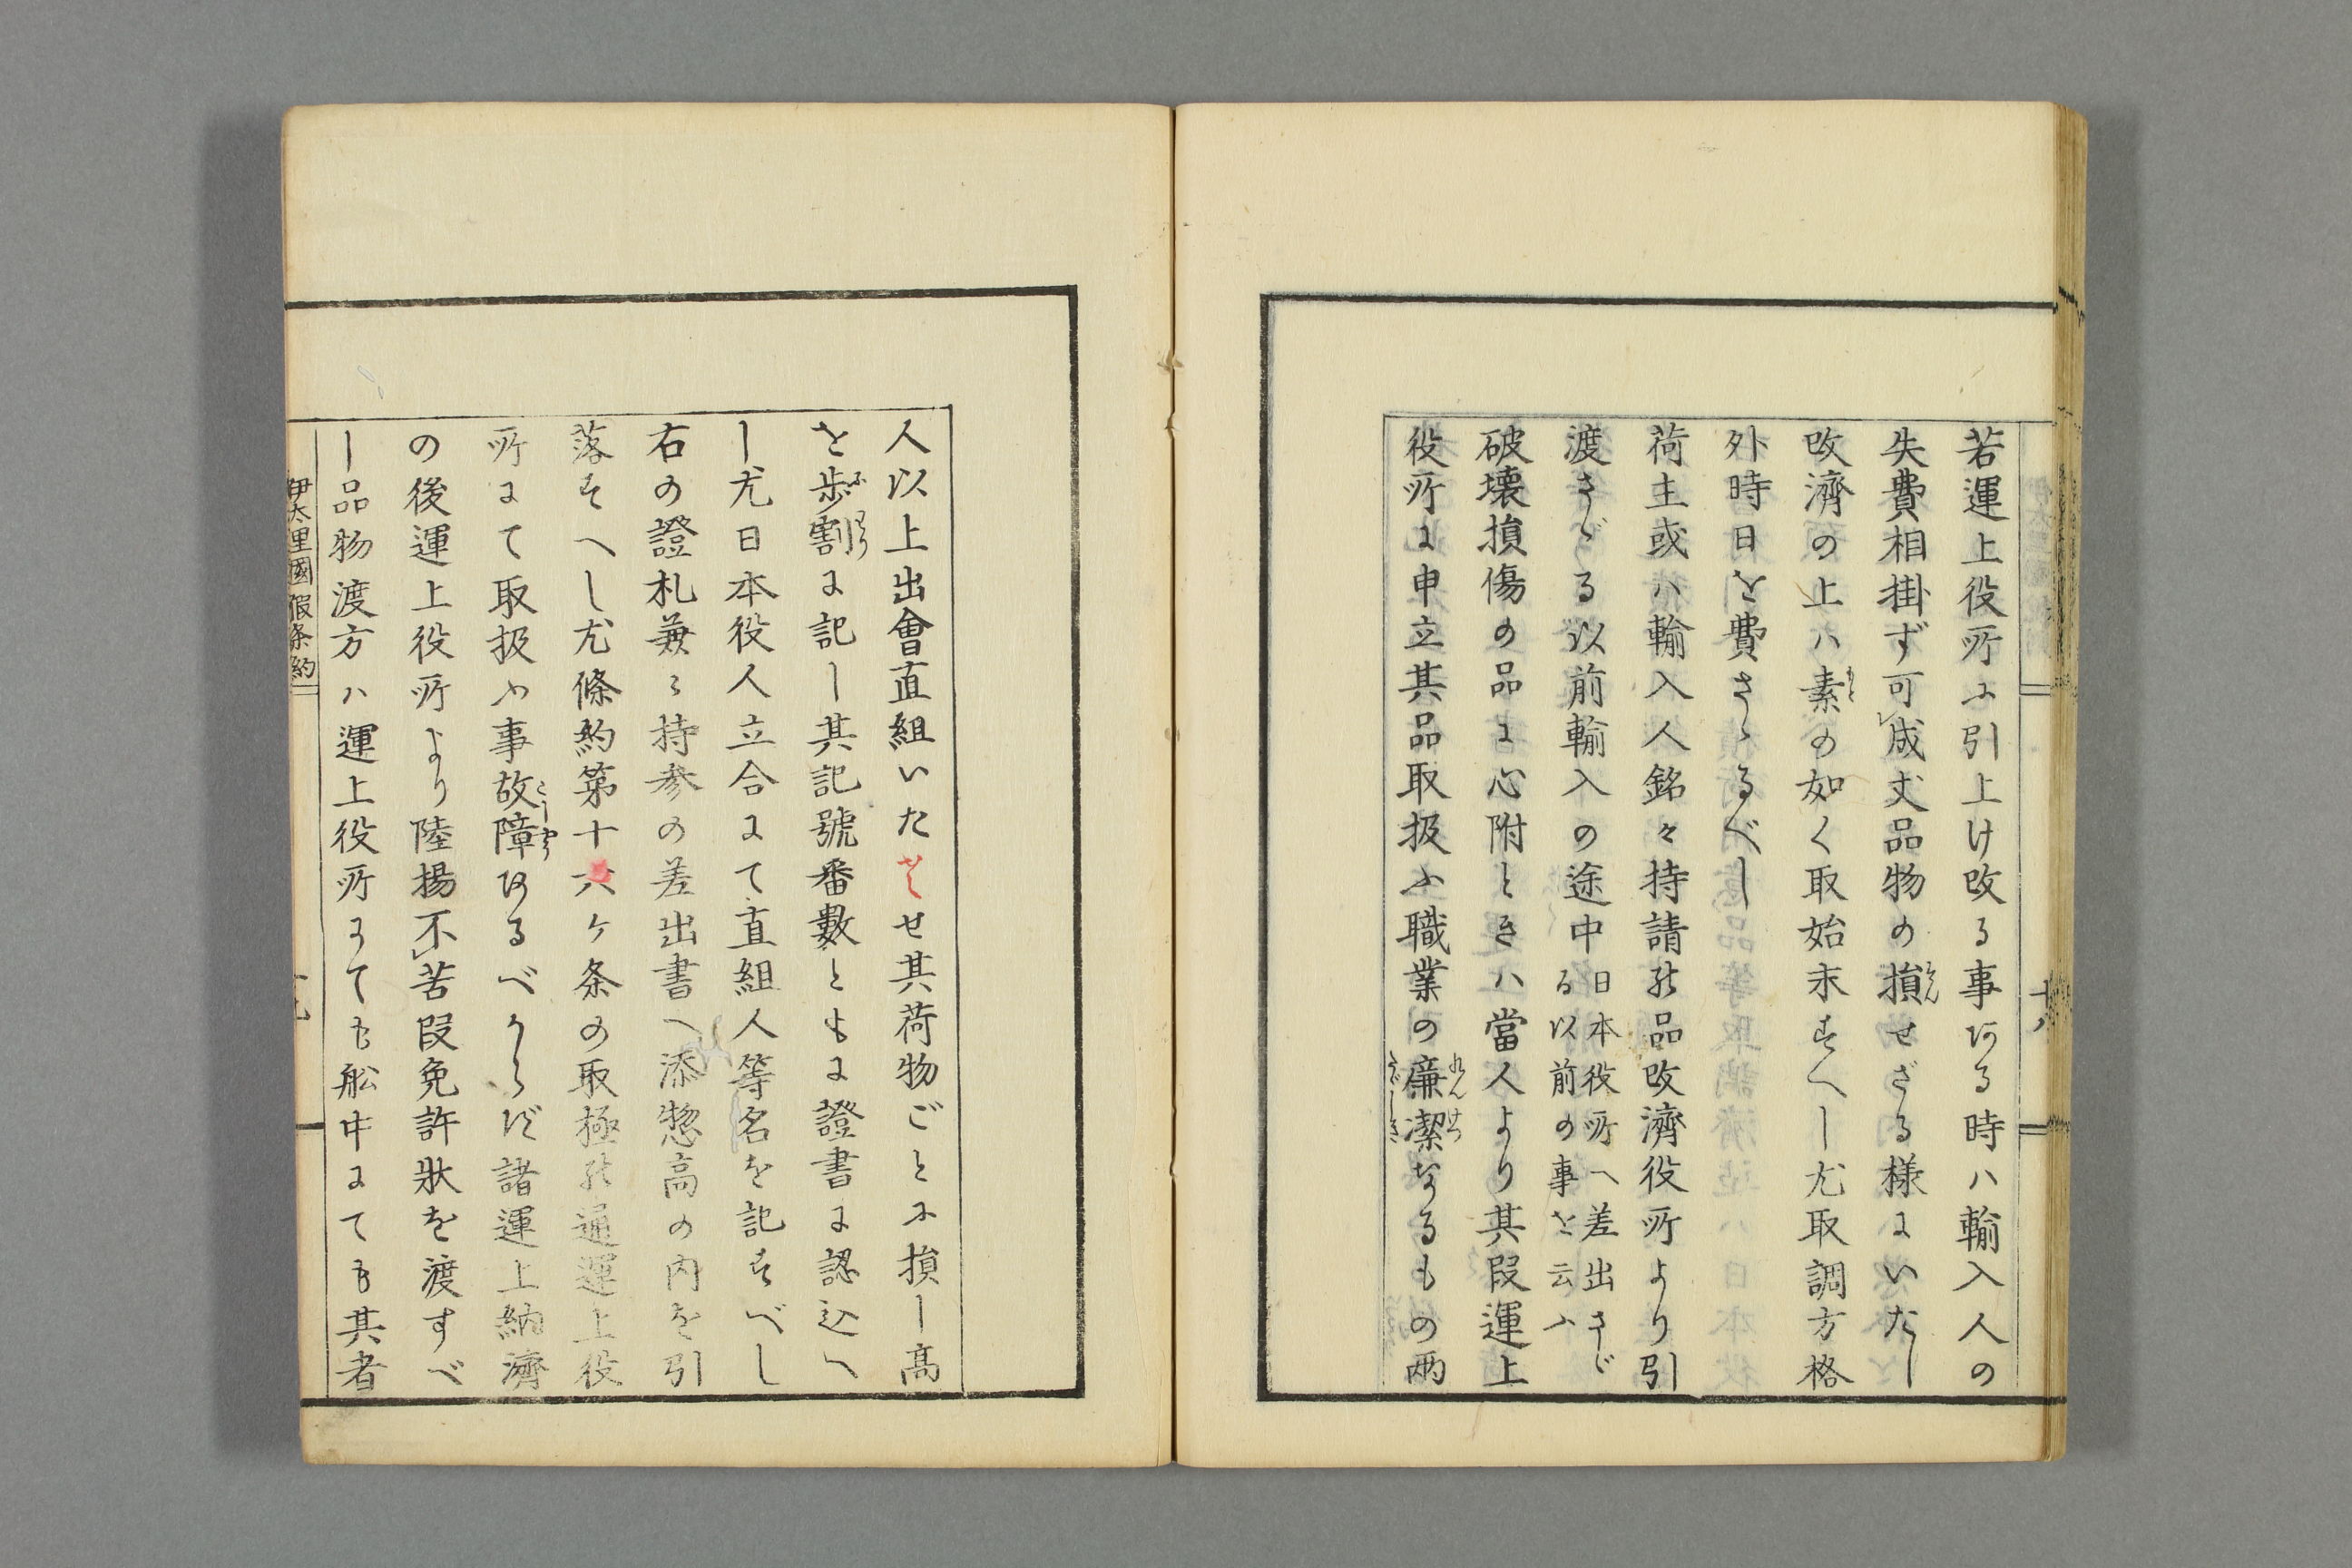 若運上役所ニ引上け改る事ある時ハ輸入人の
失費相掛ず可㆑成丈品物の損せざる様にいたし
そん
改濟の上ハ素の如く取始末すへし尤取調方格
もと
外時日を費さゝるべし
荷主或ハ輸入人銘々持請の品改濟役所より引
渡さゞる以前輸入の途中
日本役所へ差出さゞ
る以前の事を云ふ
破壊損傷の品に心附ときハ當人より其段運上
役所に申立其品取扱ふ職業の廉潔なるもの两
れんけつ
たゞしき
人以上出會直組いたさせ其荷物ごとに損し高
を歩割に記し其記號番數ともに證書に認込へ
ぶ わり
し尤日本役人立合にて直組人等名を記すべし
右の證札兼て持参の差出書へ添惣高の内を引
落すへし尤條約第十六ヶ条の取極の通運上役
所にて取扱ふ事故障あるべからず諸運上納濟
こしやう
の後運上役所より陸揚不㆑苦段免許狀を渡すべ
し品物渡方ハ運上役所にても舩中にても其者
伊太里國假条約
十八